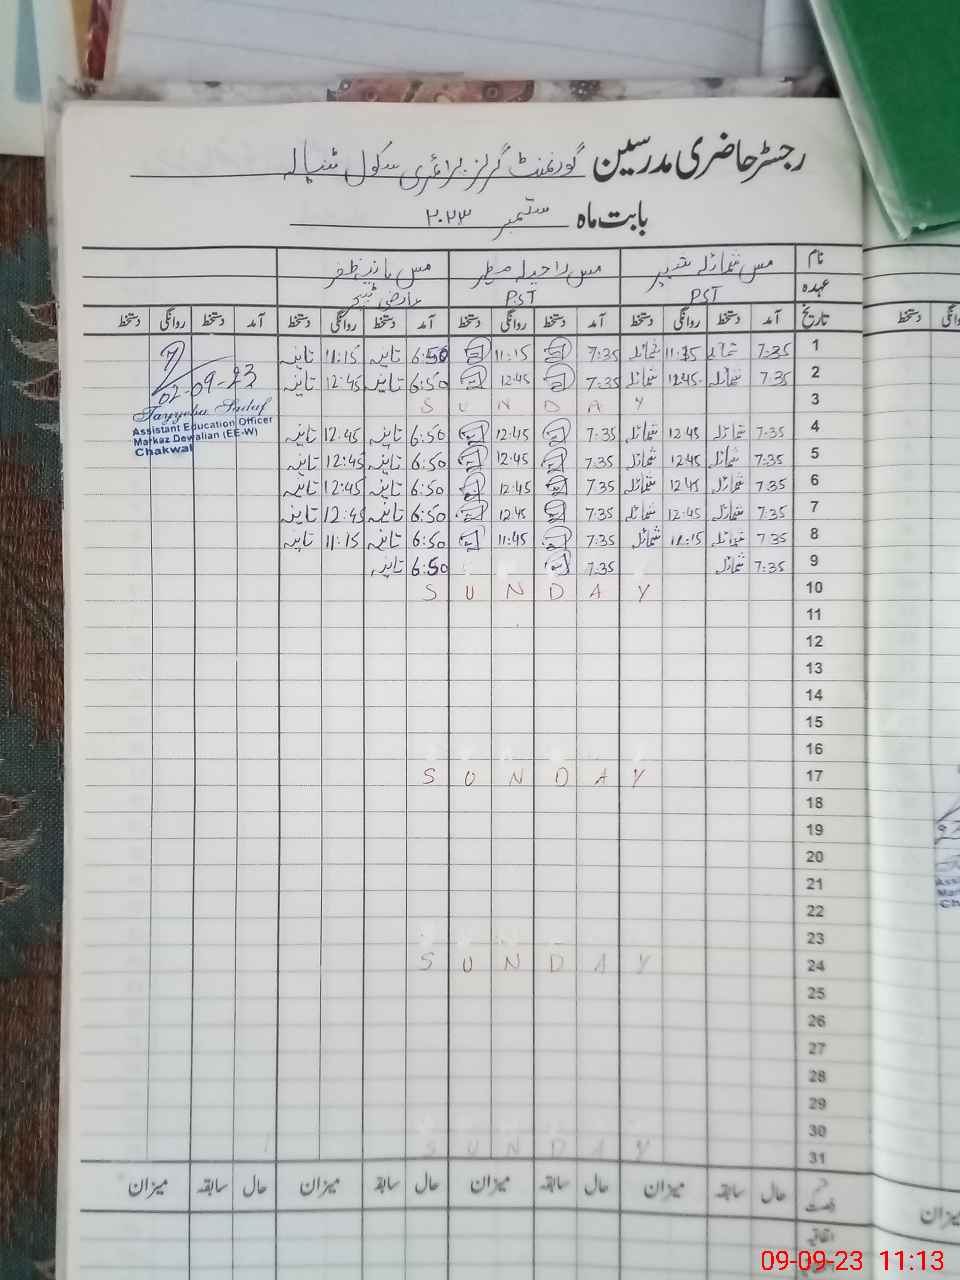 رجسٹر حاضری مدرسین گورنمنٹ گرلز پرائمری سکول
بابت ماہ ستمبر ۲۰۲۳
نام مس شمائلہ مس راحیلہ مس تانیہ ظفر
عہدہ PST PST عارضی ٹیچر
تاریخ آمد دستخط روانگی دستخط آمد دستخط روانگی دستخط آمد دستخط روانگی دستخط آمد دستخط روانگی دستخط
1 7:35 شمائلہ 11:15 شمائلہ 7:35 11:15 6:50 تانیہ 11:15 تانیہ
2 7:35 شمائلہ 12:45 شمائلہ 7:35 12:45 6:50 تانیہ 12:45 تانیہ
02-09-23
3 S U N D A Y
Assistant Education Officer
Markaz Dewalian (EE-W)
Chakwal
4 7:35 شمائلہ 12:45 شمائلہ 7:35 12:45 6:50 تانیہ 12:45 تانیہ
5 7:35 شمائلہ 12:45 شمائلہ 7:35 12:45 6:50 تانیہ 12:45 تانیہ
6 7:35 شمائلہ 12:45 شمائلہ 7:35 12:45 6:50 تانیہ 12:45 تانیہ
7 7:35 شمائلہ 12:45 شمائلہ 7:35 12:45 6:50 تانیہ 12:45 تانیہ
8 7:35 شمائلہ شمائلہ 7:35 11:45 6:50 تانیہ 11:15 تانیہ
9 7:35 شمائلہ 7:35 6:50 تانیہ
10 S U N D A Y
11
12
13
14
15
16
17 S U N D A Y
18
19
20
21
22
23
24 S U N D A Y
25
26
27
28
29
30
31 S U N D A Y
حال سابقہ میزان حال سابقہ میزان حال سابقہ میزان حال سابقہ میزان
اتفاقیہ
09-09-23 11:13